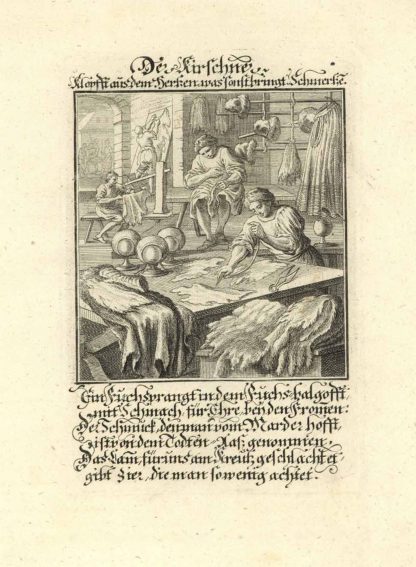 Der Kirschner.
Klopfft aus dem Hertzen, was sonst bringt Schmertze.
Ein Fuchs prangt in dem Fuchs-balg offt,
mit Schmach, für Ehre, bey den Fromen:
Der Schmuck, den man vom Marder hofft
ist von den Todten-Aaß genommen,
Das Lam̄, für uns am Kreutz geschlachtet,
gibt Zier, die man so wenig achtet.